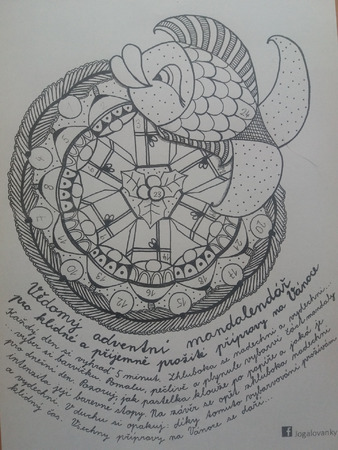 Vědomý adventní mandalendář
pro klidné a příjemně prožité přípravy na Vánoce
Každý den si vyhraď 5 minut. Zhluboka se nadechni a vydechni...
...vyber si pastelku. Pomalu, pečlivě a plynule vybarvi část mandaly
pro dnešní den. Pozoruj, jak pastelka klouže po papíře a jaká je
intenzita její barevné stopy. Na závěr se opět zhluboka nadechni
a vydechni. V duchu si opakuj: díky tomuto vybarvování prožívám
klidný čas. Všechny přípravy na Vánoce se daří...
f Jogalovanky
24
23
4
8
6
20
18
11
21
12
15